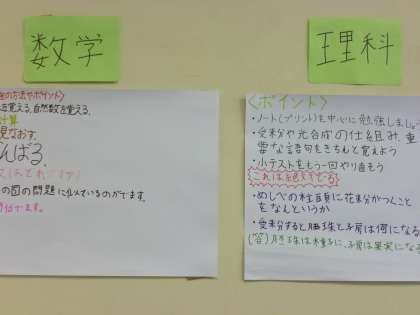 数学
の方法やポイント>
を覚える。自然数を覚える。
計算
見なおす。
んばる。
の図の問題に似ているのがでます。
理科
<ポイント>
・ノート(プリント)を中心に勉強しましょ
・受粉や光合成の仕組み、重
要な語句をきちんと覚えよう
・小テストをもう一回やり直そう
これは絶対でる
・めしべの柱頭に花粉がつくこと
をなんというか
・受粉すると胚珠と子房は何になる
(答)胚珠は種子に、子房は果実になる